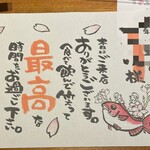 本日はご来店
ありがとうございます。
食べて飲んで笑って
最高な
時間をお過ごし下さい。
様